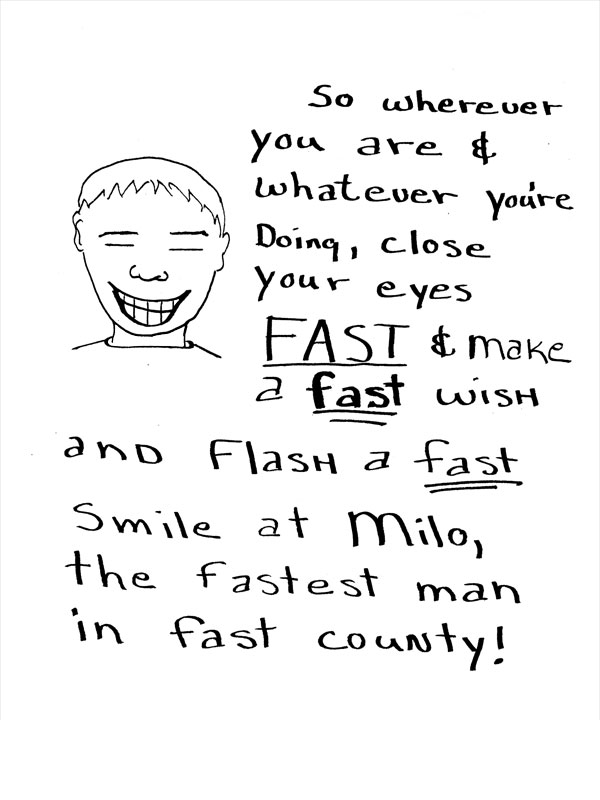 So wherever
you are &
whatever you're
Doing, close
your eyes
FAST & make
a fast wish
and Flash a fast
Smile at Milo,
the fastest man
in fast county!